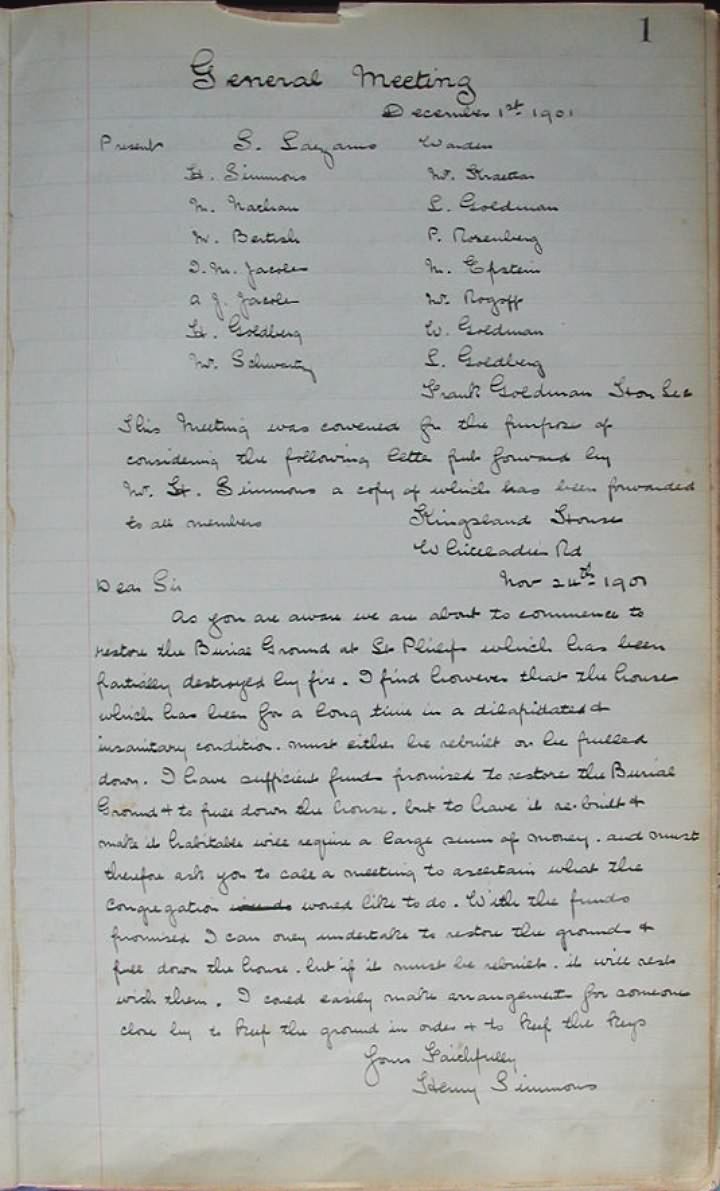 1
General Meeting
December 1st 1901
Present S. Lazarus Warden
H. Simmons Mr.
M. Nathan L. Goldman
Mr. Bertish P. Rosenberg
I. M. Jacobs M. Epstein
A J. Jacobs Mr. Rogoff
H. Goldberg W. Goldman
Mr. Schwartz L. Goldberg
Frank Goldman Hon Sec
This Meeting was convened for the purpose of
considering the following letter put forward by
Mr. H. Simmons a copy of which has been forwarded
to all members Kingsland House
Whiteladies Rd
Dear Sir Nov 24th 1901
As you are aware we are about to commence to
restore the Burial Ground at St Philips which has been
partially destroyed by fire. I find however that the house
which has been for a long time in a dilapidated &
insanitary condition. must either be rebuilt or be pulled
down. I have sufficient funds promised to restore the Burial
Ground & to pull down the house. but to have it re-built &
make it habitable will require a large sum of money. and must
therefore ask you to call a meeting to ascertain what the
Congregation would like to do. With the funds
promised I can only undertake to restore the grounds &
pull down the house. but if it must be rebuilt. it will rest
with them. I could easily make arrangements for someone
close by to keep the ground in order & to keep the keys
Yours Faithfully
Henry Simmons